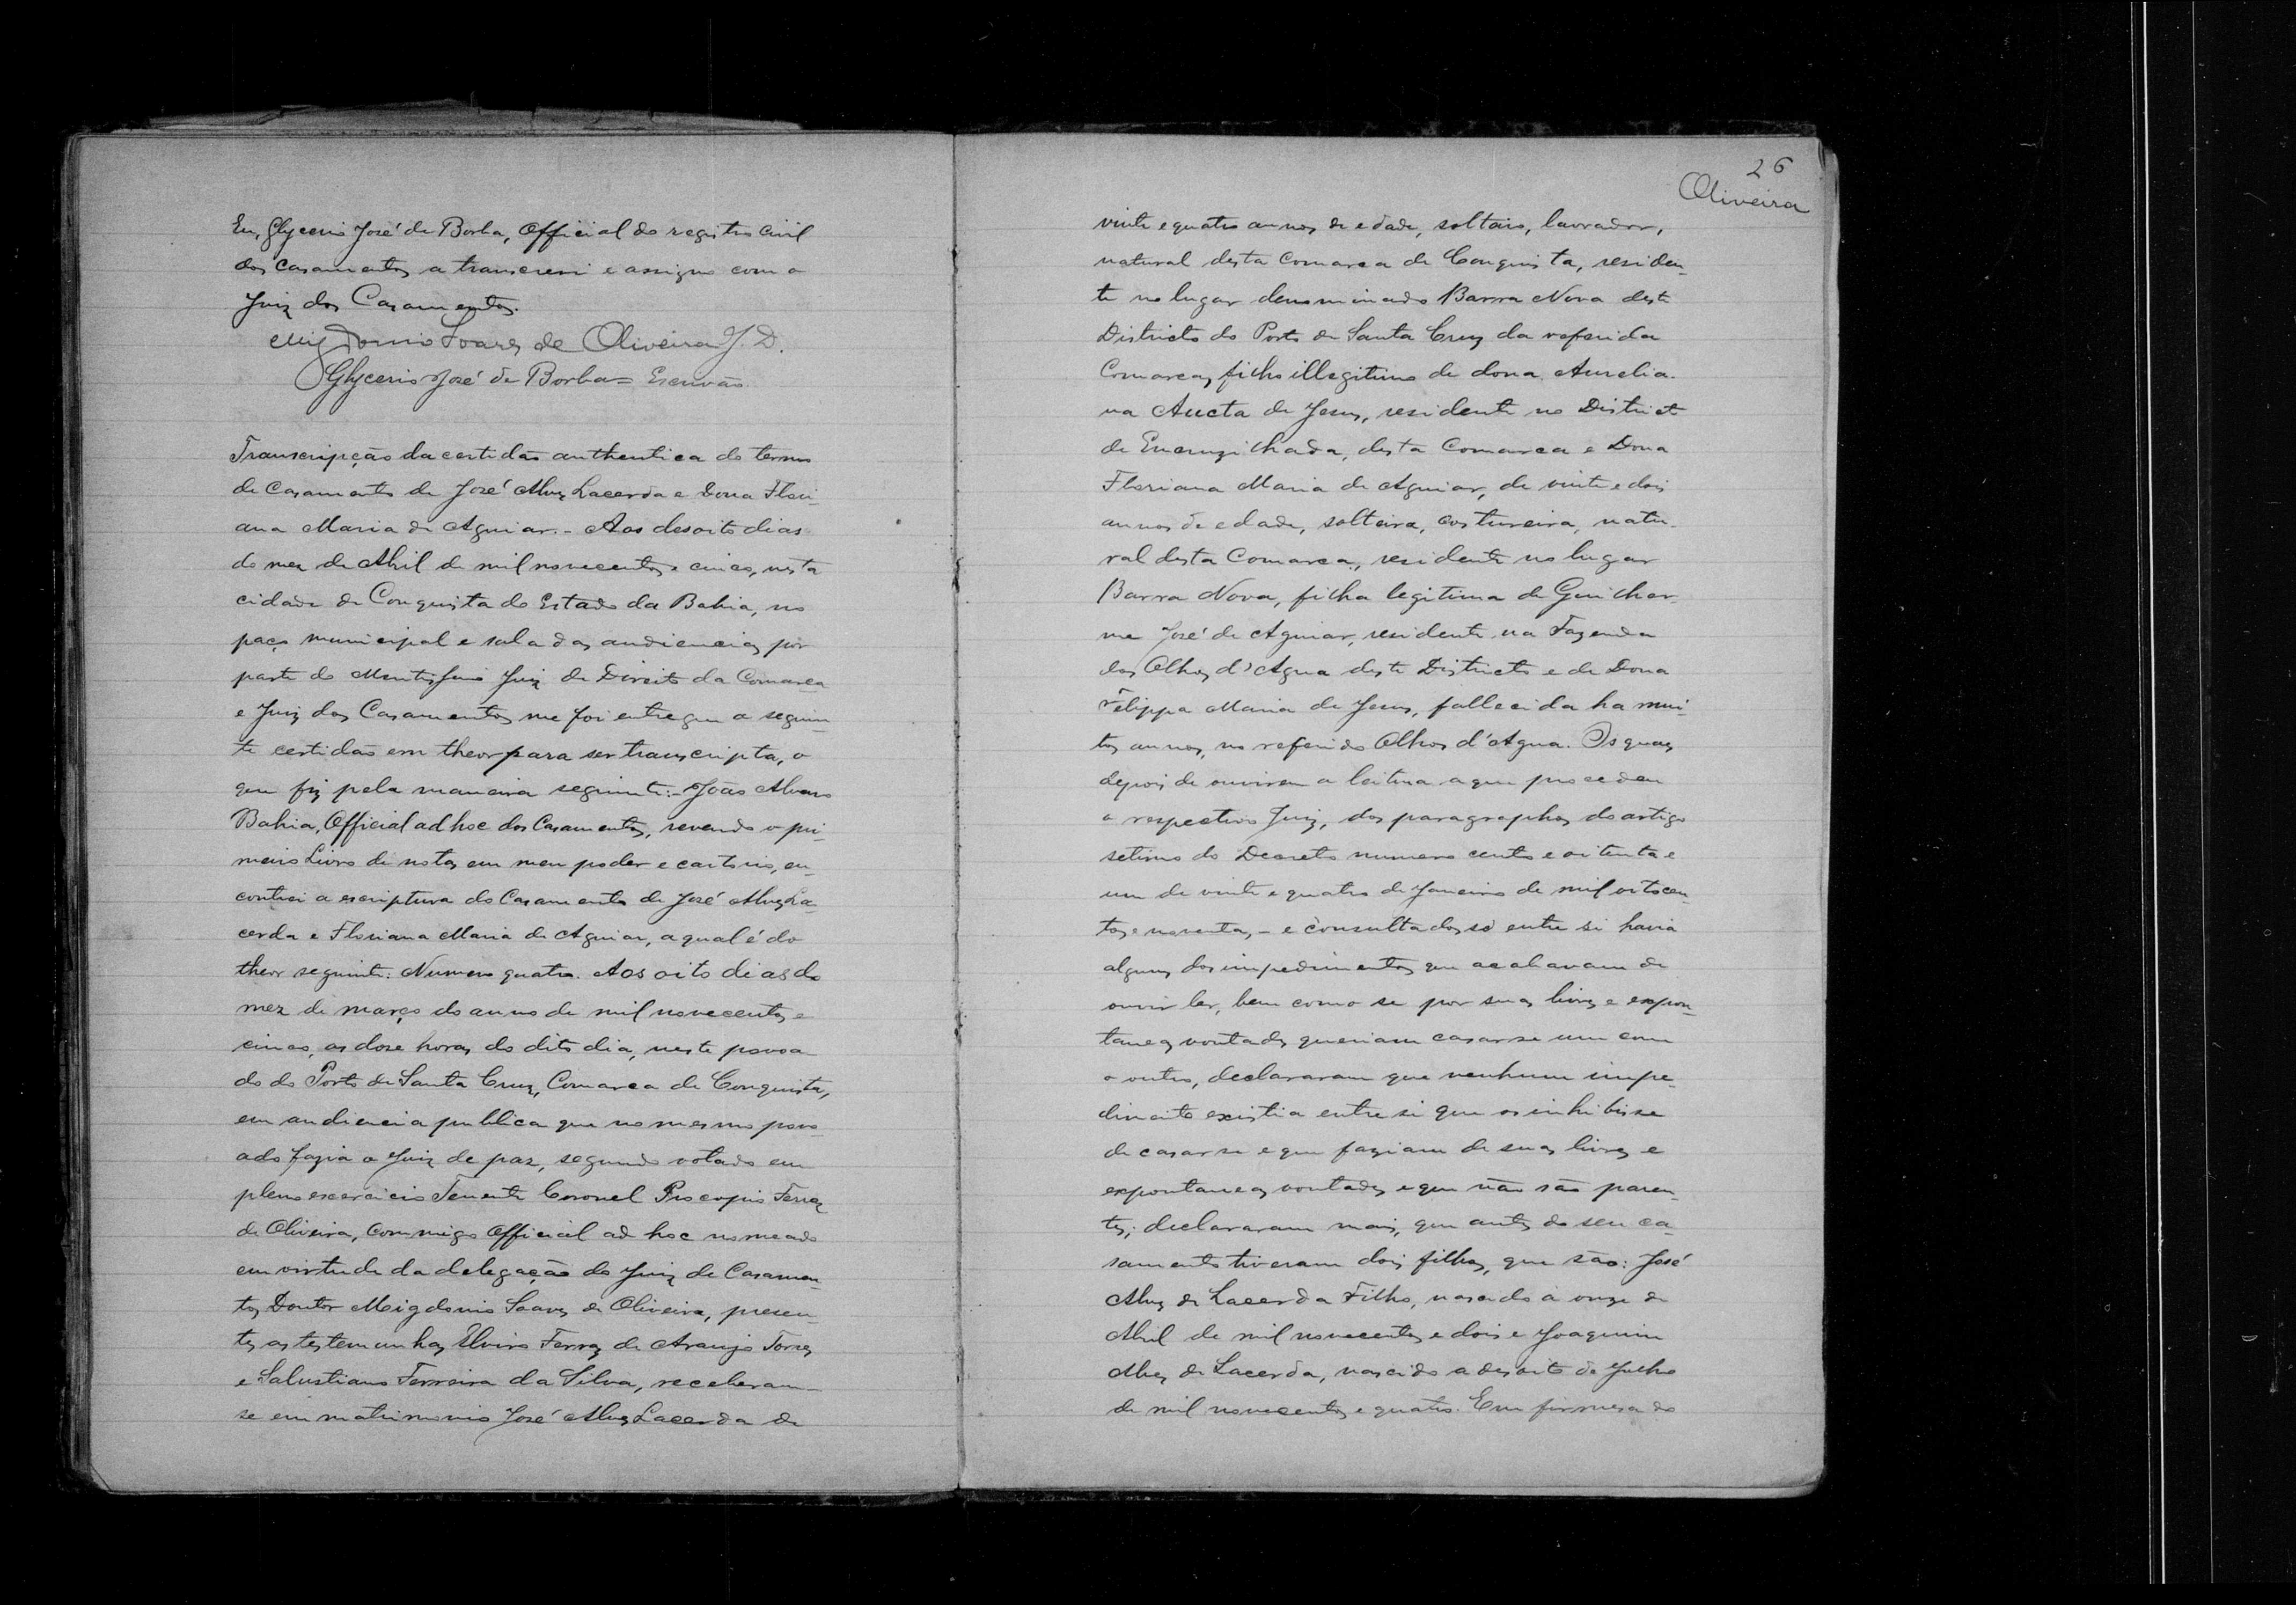 Eu, Glycerio José de Borba, Official do registro civil
dos Casamentos a transcrevi e assigno com o
Juiz dos Casamentos.
Migdonio Soares de Oliveira J. D.
Glycerio José de Borba = Escrivão
Transcripção da certidão authentica do termo
de Casamento de José Alves Lacerda e Dona Flori-
ana Maria de Aguiar. - Aos desoito dias
do mez de Abril de mil novecentos e cinco, nesta
cidade de Conquista do Estado da Bahia, no
paço municipal e sala das audiencias por
parte do Juiz de Direito da Comarca
e Juiz dos Casamentos me foi entregue a seguin
te certidão em theor para ser transcripta, o
que fiz pela maneira seguinte: - João Alvares
Bahia, Official ad hoc dos Casamentos, revendo o pri
meiro Livro de notas em meu poder e cartorio, en-
contrei a escriptura do Casamento de José Alves La-
cerda e Floriana Maria de Aguiar, a qual é do
theor seguinte: Numero quatro. Aos oito dias do
mez de março do anno de mil novecentos e
cinco, as dose horas do dito dia, neste povoa-
do do Porto de Santa Cruz, Comarca de Conquista,
em audiencia publica que no mesmo povo-
ado fazia o Juiz de paz, segundo votado em
pleno exercicio Tenente Coronel Procopio Ferraz
de Oliveira, commigo Official ad hoc nomeado
em virtude da delegação do Juiz de Casamen-
tos Doutor Meigdonio Soares de Oliveira, presen-
tes as testemunhas Elviro Ferraz de Araujo Torres
e Salustiano Ferreira da Silva, receberam-
se em matrimonio José Alves Lacerda de
26
Oliveira
vinte e quatro annos de edade, solteiro, lavrador,
natural desta Comarca de Conquista, residen-
te no lugar denominado Barra Nova deste
Districto do Porto de Santa Cruz da referida
Comarca, filho illegitimo de dona Aurelia-
na Aucta de Jesus, residente no District
de Encruzilhada, desta Comarca e Dona
Floriana Maria de Aguiar, de vinte e dois
annos de edade, solteira, costureira, natu-
ral desta Comarca, residente no lugar
Barra Nova, filha legitima de Guilher-
me José de Aguiar, residente na Fazenda
dos Olhos d'Agua deste Districto e de Dona
Felippa Maria de Jesus, fallecida ha mui-
tos annos, no referido Olhos d'Agua. Os quaes
depois de ouvirem a leitura a que procedeu
o respectivo Juiz, dos paragraphos do artigo
setimo do Decreto numero cento e oitenta e
um de vinte e quatro de Janeiro de mil oitocen-
tos e noventa, - e consultados si entre si havia
alguns dos impedimentos que acabavam de
ouvir ler, bem como se por suas livres e expon-
taneas vontades queriam casar-se um com
o outro, declararam que nenhum impe-
dimento existia entre si que os inhibisse
de casar-se e que faziam de suas livres e
expontaneas vontades e que não são paren-
tes; declararam mais, que antes do seu ca-
samento tiveram dois filhos, que são: José
Alves de Lacerda Filho, nascido à onze de
Abril de mil novecentos e dois e Joaquim
Alves de Lacerda, nascido a desoito de Julho
de mil novecentos e quatro. Em firmesa do